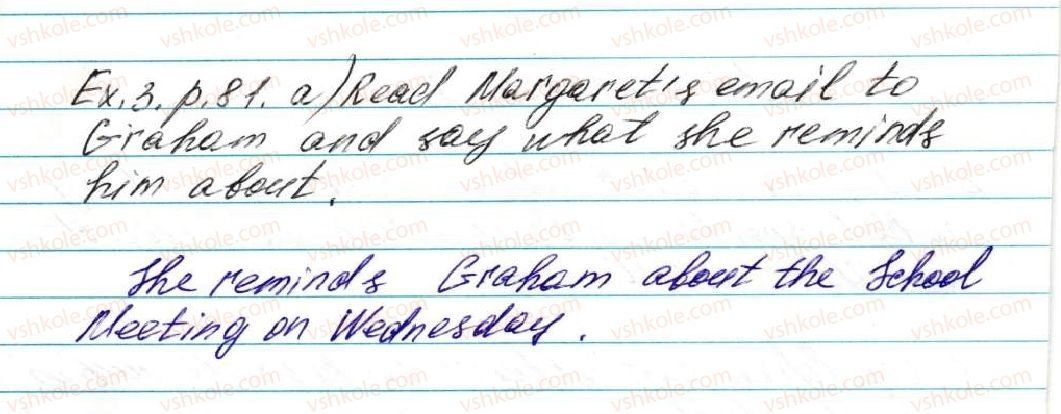 Ex. 3. p. 81. a) Read Margaret's email to
Graham and say what she reminds
him about.
She reminds Graham about the School
Meeting on Wednesday.